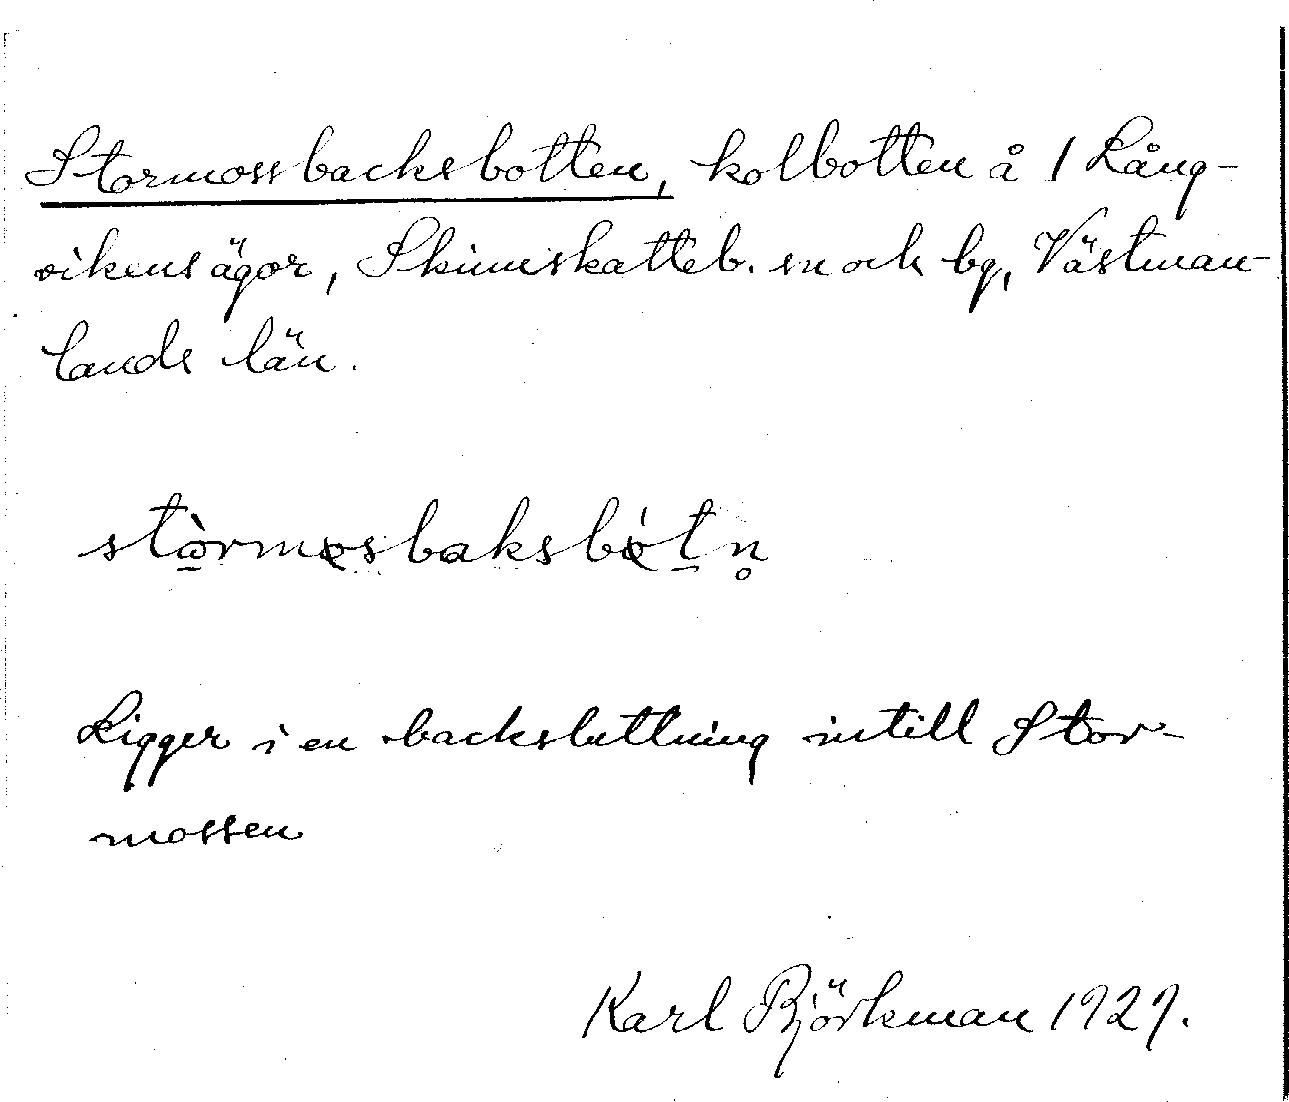 Stormossbacksbotten, kolbotten å 1 Lång-
vikens ägor, Skinnskatteb. sn och bg, Västman-
lands län.
stòrmosbaksbótn̥
Ligger i en backsluttning intill Stor-
mossen
Karl Björkman 1929.